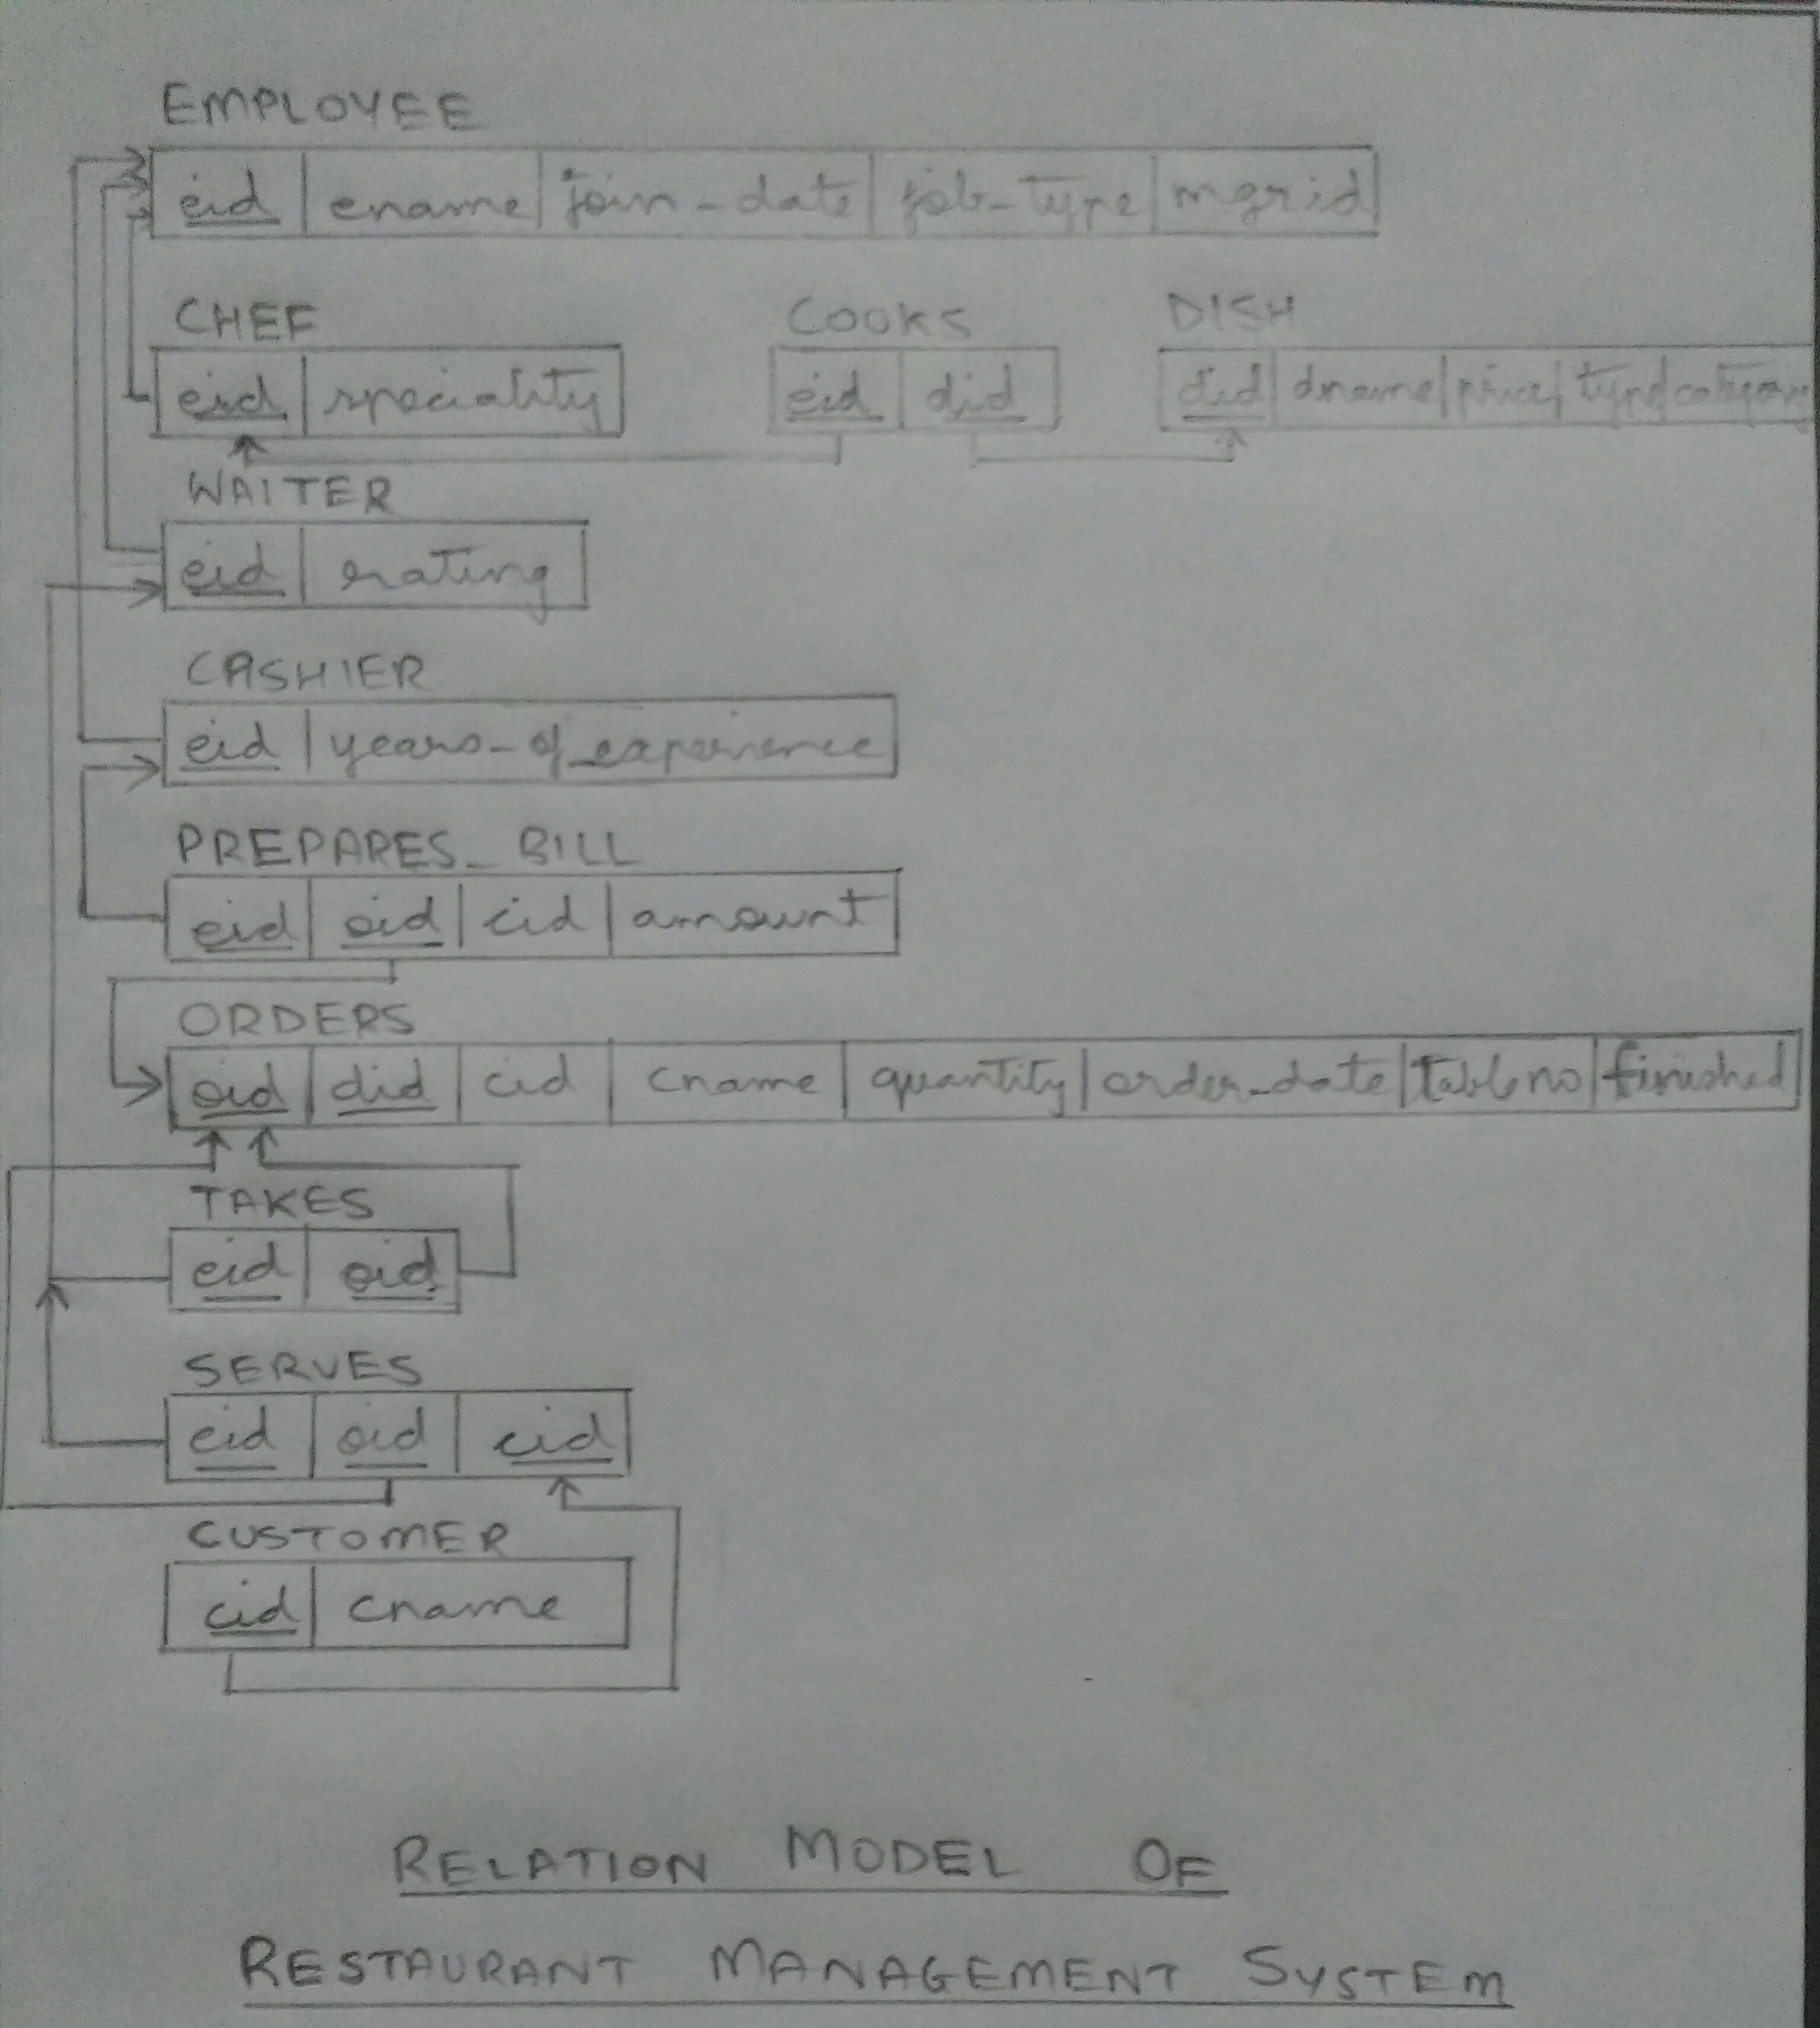 EMPLOYEE
eid ename join-date job-type mgrid
CHEF COOKS DISH
eid speciality eid did did dname price type category
WAITER
eid rating
CASHIER
eid years-of_experience
PREPARES_BILL
eid oid cid amount
ORDERS
oid did cid cname quantity order_date tableno finished
TAKES
eid oid
SERVES
eid oid cid
CUSTOMER
cid cname
RELATION MODEL OF
RESTAURANT MANAGEMENT SYSTEM